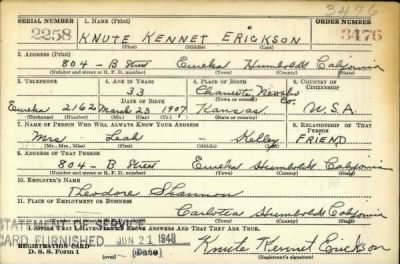 3476
SERIAL NUMBER 1. NAME (Print) ORDER NUMBER
2258 KNUTE KENNET ERICKSON 3476
(First) (Middle) (Last)
2. ADDRESS (Print)
804 - B Street Eureka Humboldt California
(Number and street or R. F. D. number) (Town) (County) (State)
3. TELEPHONE 4. AGE IN YEARS 5. PLACE OF BIRTH 6. COUNTRY OF CITIZENSHIP
33 Chanute Neosho Co.
DATE OF BIRTH (Town or county)
Eureka 2162 March 23 1907 Kansas U.S.A.
(Exchange) (Number) (Mo.) (Day) (Yr.) (State or country)
7. NAME OF PERSON WHO WILL ALWAYS KNOW YOUR ADDRESS 8. RELATIONSHIP OF THAT PERSON
Mrs - Kelley FRIEND
(Mr., Mrs., Miss) (First) (Middle) (Last)
9. ADDRESS OF THAT PERSON
804 - B Street Eureka Humboldt California
(Number and street or R. F. D. number) (Town) (County) (State)
10. EMPLOYER'S NAME
Theodore Shannon
11. PLACE OF EMPLOYMENT OR BUSINESS
Carlotta Humboldt California
(Number and street or R. F. D. number) (Town) (County) (State)
I AFFIRM THAT I HAVE VERIFIED ABOVE ANSWERS AND THAT THEY ARE TRUE.
STATEMENT OF SERVICE
CARD FURNISHED JUN 21 1948
REGISTRATION CARD
D. S. S. Form 1 (over) (Date)
Knute Kennet Erickson
(Registrant's signature)